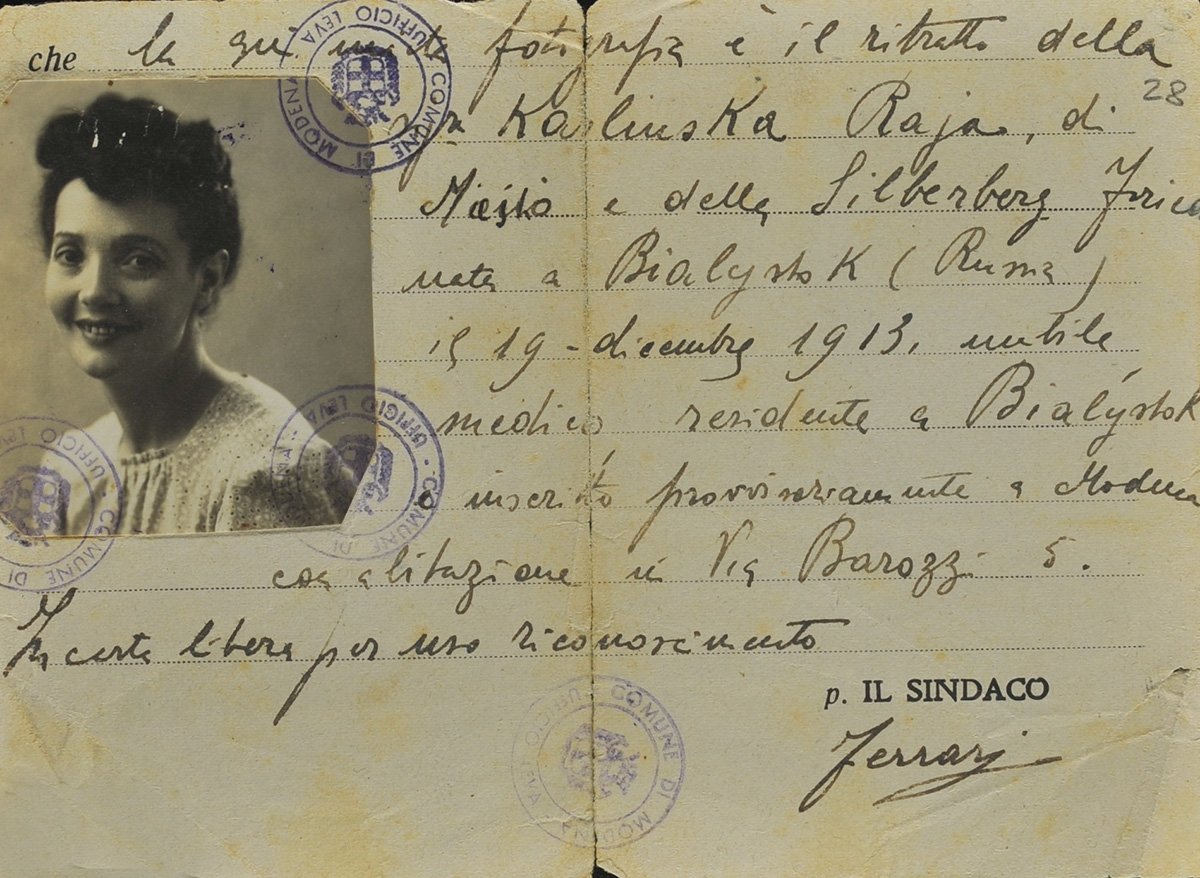 che la qui unita fotografia è il ritratto della
28
Kaplinska Raja, di
e della Silberberg
nata a Bialystok (Russia)
il 19 - dicembre 1913, nubile
medico residente a Bialystok
inscritto provvisoriamente a Modena
con abitazione in Via Barozzi 5.
In carta libera per uso riconoscimento
p. IL SINDACO
Ferrari
COMUNE DI MODENA UFFICIO LEVA
COMUNE DI MODENA UFFICIO LEVA
COMUNE DI UFFICIO LEVA
COMUNE DI MODENA